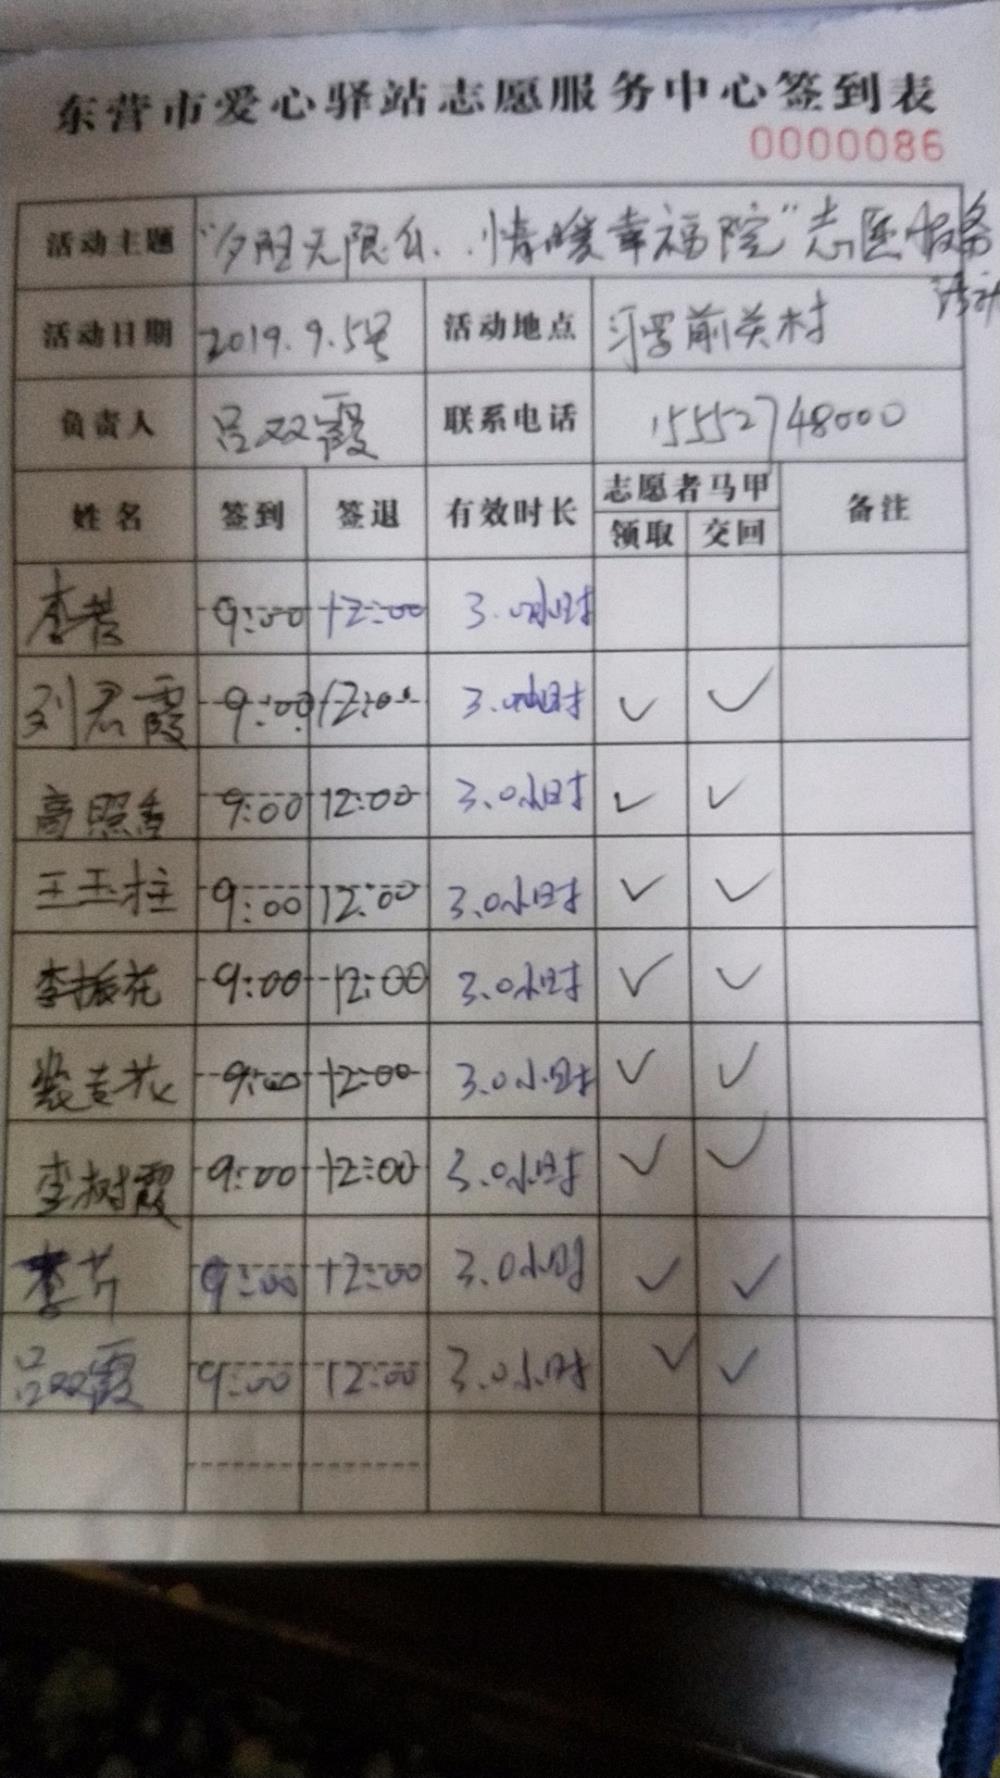 东营市爱心驿站志愿服务中心签到表
0000086
活动主题 "夕阳无限红..情暖幸福院"志愿服务
活动
活动日期 2019.9.5号 活动地点 前关村
负责人 吕双霞 联系电话 15552748000
姓名 签到 签退 有效时长 志愿者马甲 备注
领取 交回
李 9:00 12:00 3.0小时
刘君霞 9:00 12:00 3.0小时 ✓ ✓
高照香 9:00 12:00 3.0小时 ✓ ✓
王玉柱 9:00 12:00 3.0小时 ✓ ✓
李振花 9:00 12:00 3.0小时 ✓ ✓
花 9:00 12:00 3.0小时 ✓ ✓
李树霞 9:00 12:00 3.0小时 ✓ ✓
李芹 9:00 12:00 3.0小时 ✓ ✓
吕双霞 9:00 12:00 3.0小时 ✓ ✓